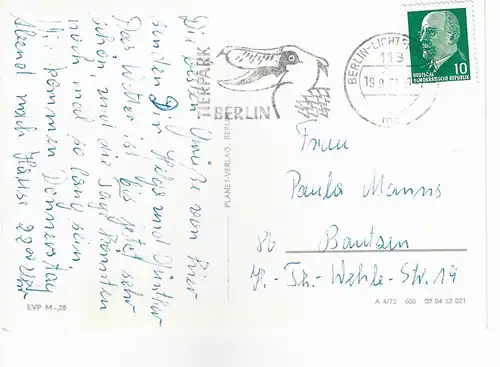 Die besten Grüße von hier
senden Dir Helga und Günther
Das Wetter ist bis jetzt sehr
schön, und die Tage könnten
noch mal so lang sein.
Wir kommen Donnerstag
Abend nach Hause 22⁰⁰ Uhr
EVP M -,25
PLANET-VERLAG, BERLIN
TIERPARK
BERLIN
BERLIN-LICHT
113
19.9.7
10
DEUTSCHE
DEMOKRATISCHE REPUBLIK
Frau
Paula Manns
86 Bautzen
J.-Th-Wehle-Str. 19
A 4/73 606 02 04 22 021